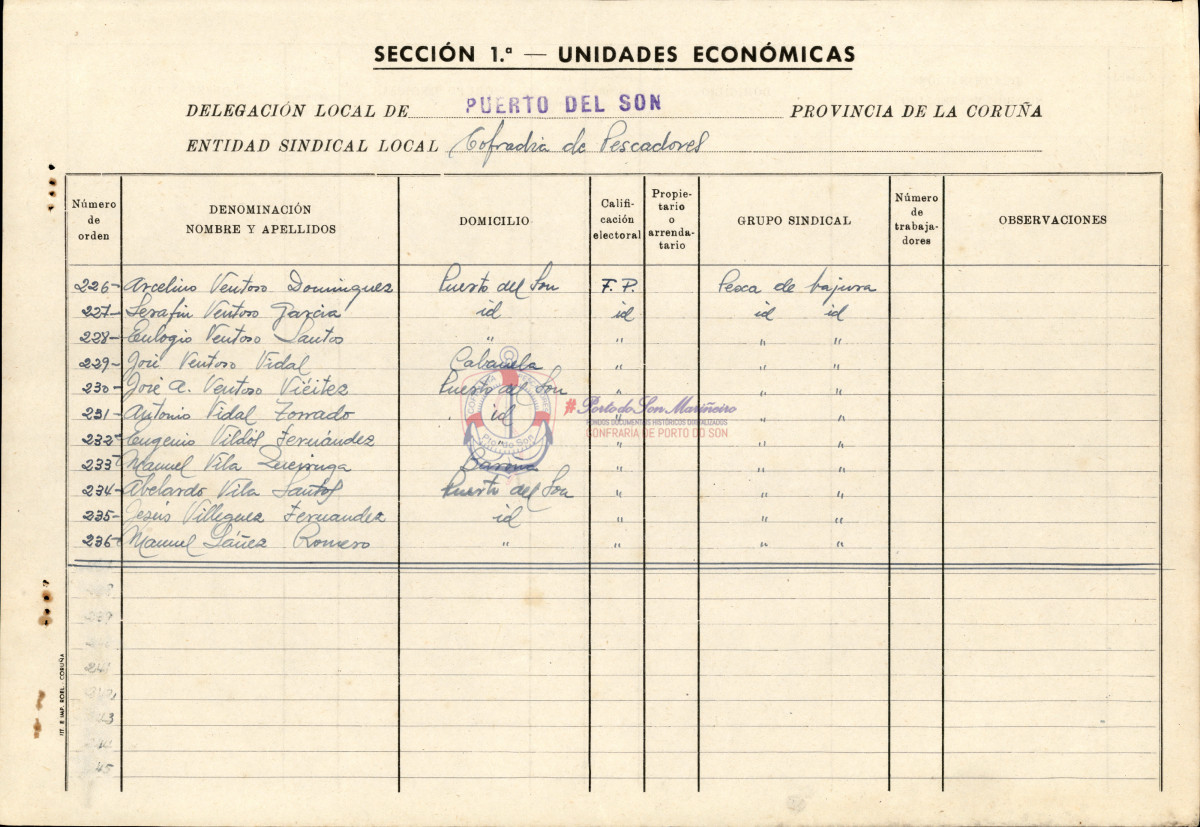 SECCIÓN 1.ª — UNIDADES ECONÓMICAS
DELEGACIÓN LOCAL DE PUERTO DEL SON PROVINCIA DE LA CORUÑA
ENTIDAD SINDICAL LOCAL Cofradia de Pescadores
Número de orden DENOMINACIÓN NOMBRE Y APELLIDOS DOMICILIO Califi-cación electoral Propie-tario o arrenda-tario GRUPO SINDICAL Número de trabaja-dores OBSERVACIONES
226- Arcelino Ventoso Dominguez Puerto del Son F. P. Pesca de bajura
227- Serafin Ventoso Garcia id id id id
228- Eulogio Ventoso Santos " " " "
229- José Ventoso Vidal Cabanela " " "
230- José A. Ventoso Viéitez Puerto del Son " " "
231- Antonio Vidal Torrado id " " "
232- Eugenio Vidós Fernández " " "
233- Manuel Vila Queiruga Baroña " " "
234- Abelardo Vila Santos Puerto del Son " " "
235- Jesús Villeguez Fernandez id " " "
236- Manuel Yáñez Romero " " " "
239
241
#Porto do Son Mariñeiro
FONDOS DOCUMENTAIS HISTÓRICOS DIXITALIZADOS
CONFRARÍA DE PORTO DO SON
Porto do Son
IMP. ROEL - CORUÑA